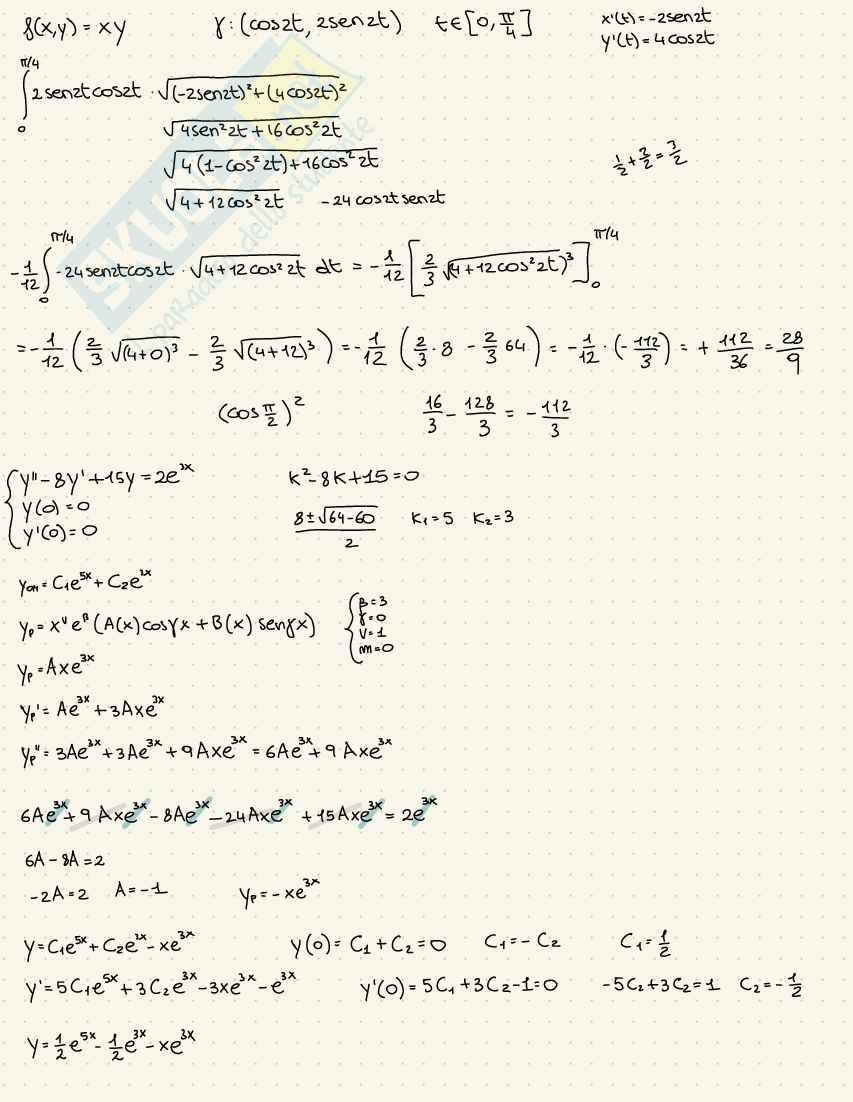 f(x,y) = xy γ: (cos2t, 2sen2t) t∈[0, π/4] x'(t) = -2sen2t
y'(t) = 4cos2t
∫₀^(π/4) 2sen2tcos2t · √((-2sen2t)²+(4cos2t)²)
√(4sen²2t + 16cos²2t)
√(4(1-cos²2t)+16cos²2t) 1/2 + 2/2 = 3/2
√(4+12cos²2t) -24cos2tsen2t
-1/12 ∫₀^(π/4) -24sen2tcos2t · √(4+12cos²2t) dt = -1/12 [2/3 √(4+12cos²2t)³]₀^(π/4)
= -1/12 (2/3 √(4+0)³ - 2/3 √(4+12)³) = -1/12 (2/3 · 8 - 2/3 64) = -1/12 · (-112/3) = + 112/36 = 28/9
(cos π/2)² 16/3 - 128/3 = -112/3
{ y'' - 8y' + 15y = 2e^3x K² - 8K + 15 = 0
y(0) = 0
y'(0) = 0 (8±√(64-60))/2 K₁=5 K₂=3
yₒₘ = C₁e^5x + C₂e^3x
yₚ = x^ν e^β (A(x)cosγx + B(x) senγx) { β=3
γ=0
ν=1
m=0
yₚ = Axe^3x
yₚ' = Ae^3x + 3Axe^3x
yₚ'' = 3Ae^3x + 3Ae^3x + 9Axe^3x = 6Ae^3x + 9Axe^3x
6Ae^3x + 9Axe^3x - 8Ae^3x - 24Axe^3x + 15Axe^3x = 2e^3x
6A - 8A = 2
-2A = 2 A = -1 yₚ = -xe^3x
y = C₁e^5x + C₂e^3x - xe^3x y(0) = C₁ + C₂ = 0 C₁ = -C₂ C₁ = 1/2
y' = 5C₁e^5x + 3C₂e^3x - 3xe^3x - e^3x y'(0) = 5C₁ + 3C₂ - 1 = 0 -5C₂ + 3C₂ = 1 C₂ = -1/2
y = 1/2 e^5x - 1/2 e^3x - xe^3x